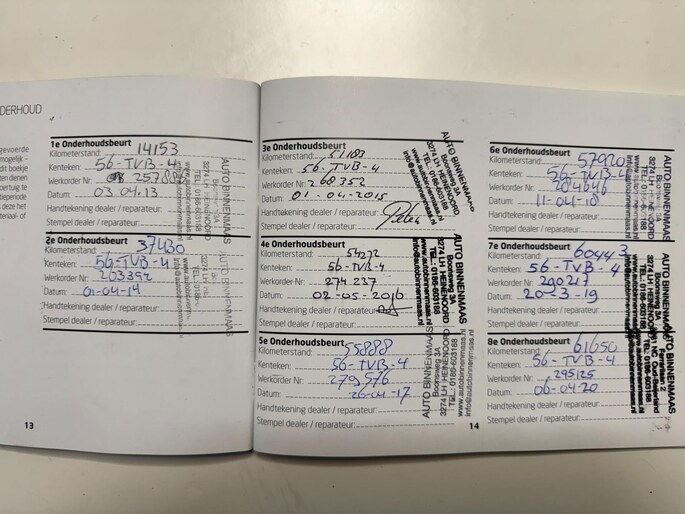 DERHOUD
gevoerde
mogelijk -
dit boekje
en dienen
oertuig te
tieperiode
s deze het
teriaal- of
1e Onderhoudsbeurt
Kilometerstand: 14153
Kenteken: 56-TVB-4
Werkorder Nr:
Datum: 03.04.13
Handtekening dealer / reparateur:
Stempel dealer / reparateur:
AUTO BINNENMAAS
3274 LH HEINENOORD
TEL.: 0186-603188
2e Onderhoudsbeurt
Kilometerstand: 37430
Kenteken: 56-TVB-4
Werkorder Nr: 203392
Datum: 01-04-14
Handtekening dealer / reparateur:
Stempel dealer / reparateur:
AUTO BINNENMAAS
13
3e Onderhoudsbeurt
Kilometerstand: 51183
Kenteken: 56-TVB-4
Werkorder Nr: 268352
Datum: 01-04-2015
Handtekening dealer / reparateur:
Stempel dealer / reparateur:
AUTO BINNENMAAS
Boomweg 3A
3274 LH HEINENOORD
TEL.: 0186-603188
www.autobinnenmaas.nl
info@autobinnenmaas.nl
4e Onderhoudsbeurt
Kilometerstand: 54272
Kenteken: 56-TVB-4
Werkorder Nr: 274237
Datum: 02-05-2016
Handtekening dealer / reparateur:
Stempel dealer / reparateur:
AUTO BINNENMAAS
Boomweg 3A
3274 LH HEINENOORD
TEL.: 0186-603188
www.autobinnenmaas.nl
info@autobinnenmaas.nl
5e Onderhoudsbeurt
Kilometerstand: 55888
Kenteken: 56-TVB-4
Werkorder Nr: 279576
Datum: 26-04-17
Handtekening dealer / reparateur:
Stempel dealer / reparateur:
AUTO BINNENMAAS
Boomweg 3A
3274 LH HEINENOORD
TEL.: 0186-603188
www.autobinnenmaas.nl
info@autobinnenmaas.nl
14
6e Onderhoudsbeurt
Kilometerstand: 57920
Kenteken: 56-TVB-4
Werkorder Nr: 284646
Datum: 11-04-18
Handtekening dealer / reparateur:
Stempel dealer / reparateur:
AUTO BINNENMAAS
7e Onderhoudsbeurt
Kilometerstand: 60443
Kenteken: 56-TVB-4
Werkorder Nr: 290217
Datum: 20-3-19
Handtekening dealer / reparateur:
Stempel dealer / reparateur:
AUTO BINNENMAAS
8e Onderhoudsbeurt
Kilometerstand: 61650
Kenteken: 56-TVB-4
Werkorder Nr: 295125
Datum: 06-04-20
Handtekening dealer / reparateur:
Stempel dealer / reparateur: